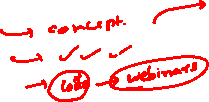 → concept.
→ ✓ ✓ ✓
→ → webinars